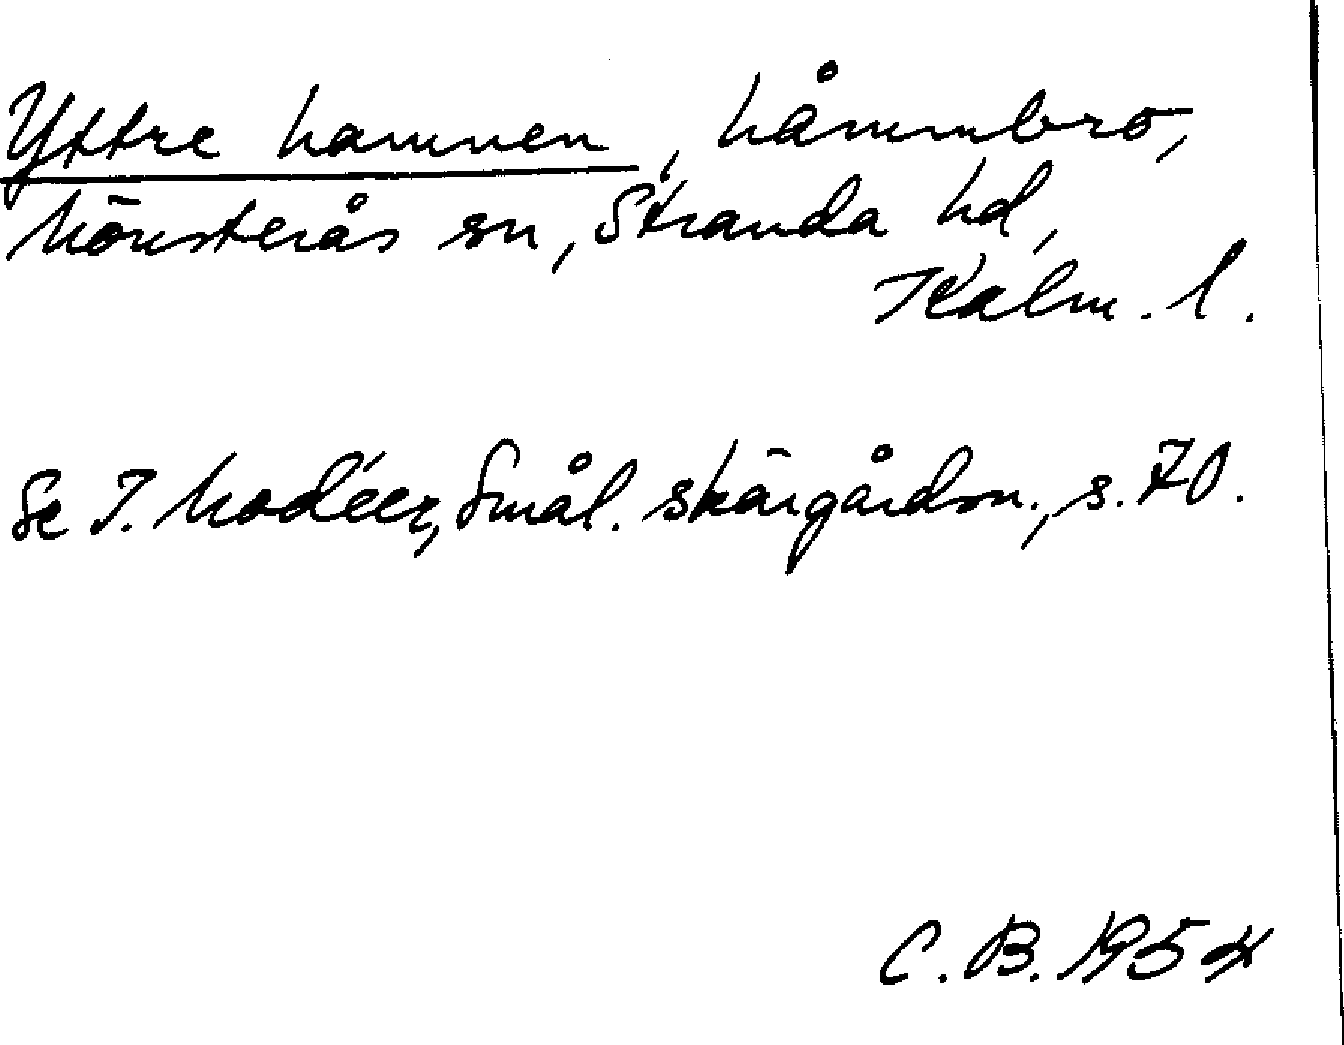 Yttre hamnen, Nämmbro,
Mönsterås sn, Stranda hd,
Kalm. l.
Se I. Modéer, Smål. skärgårdsn., s. 70.
C. B. 1954